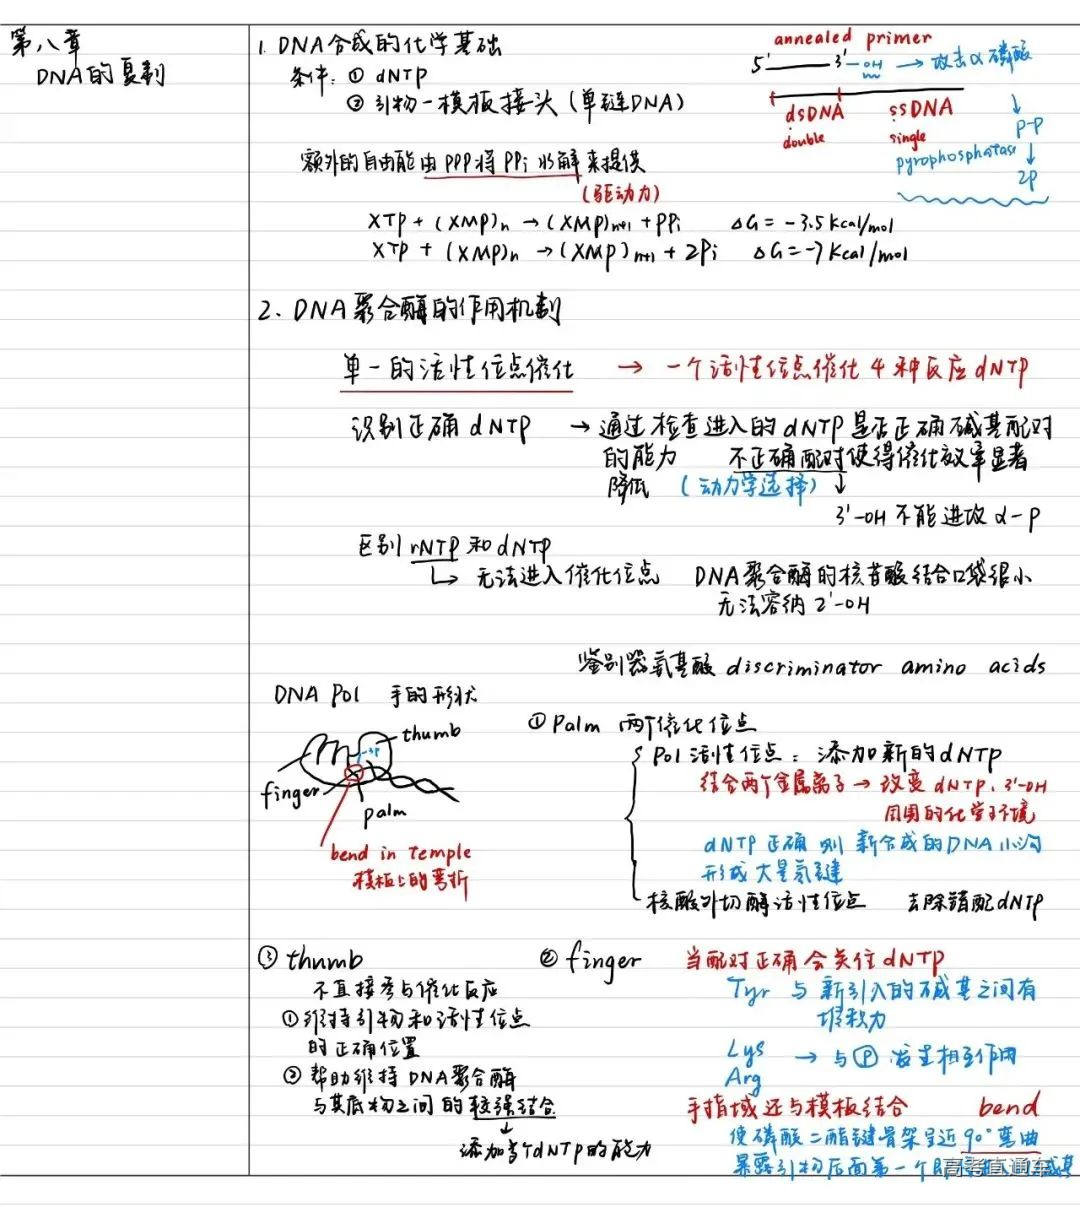 第八章
DNA的复制
1. DNA合成的化学基础
条件: ① dNTP
② 引物-模板接头 (单链DNA)
annealed primer
5' 3' -OH → 攻击α磷酸
dsDNA ssDNA
double single
P-P
pyrophosphatase
2P
额外的自由能由PPP将PPi水解来提供
(驱动力)
XTP + (XMP)n → (XMP)n+1 + PPi ΔG = -3.5 kcal/mol
XTP + (XMP)n → (XMP)n+1 + 2Pi ΔG = -7 kcal/mol
2. DNA聚合酶的作用机制
单一的活性位点催化 → 一个活性位点催化4种反应dNTP
识别正确dNTP → 通过检查进入的dNTP是否正确碱基配对
的能力 不正确配对使得催化效率显著
降低 (动力学选择) ↓
3'-OH不能进攻α-P
区别rNTP和dNTP
↳ 无法进入催化位点 DNA聚合酶的核苷酸结合口袋很小
无法容纳2'-OH
鉴别器氨基酸 discriminator amino acids
DNA Pol 手的形状
thumb
finger
palm
bend in temple
模板上的弯折
① Palm 两个催化位点
Pol活性位点: 添加新的dNTP
结合两个金属离子 → 改变dNTP、3'-OH
周围的化学环境
dNTP正确则新合成的DNA小沟
形成大量氢键
核酸外切酶活性位点 去除错配dNTP
③ thumb
不直接参与催化反应
① 维持引物和活性位点
的正确位置
② 帮助维持DNA聚合酶
与其底物之间的较强结合
↓
添加多个dNTP的能力
② finger 当配对正确会关住dNTP
Tyr 与新引入的碱基之间有
堆积力
Lys → 与Ⓟ发生相互作用
Arg
手指域还与模板结合 bend
使磷酸二酯键骨架呈近90°弯曲
暴露引物后面第一个
高考直通车